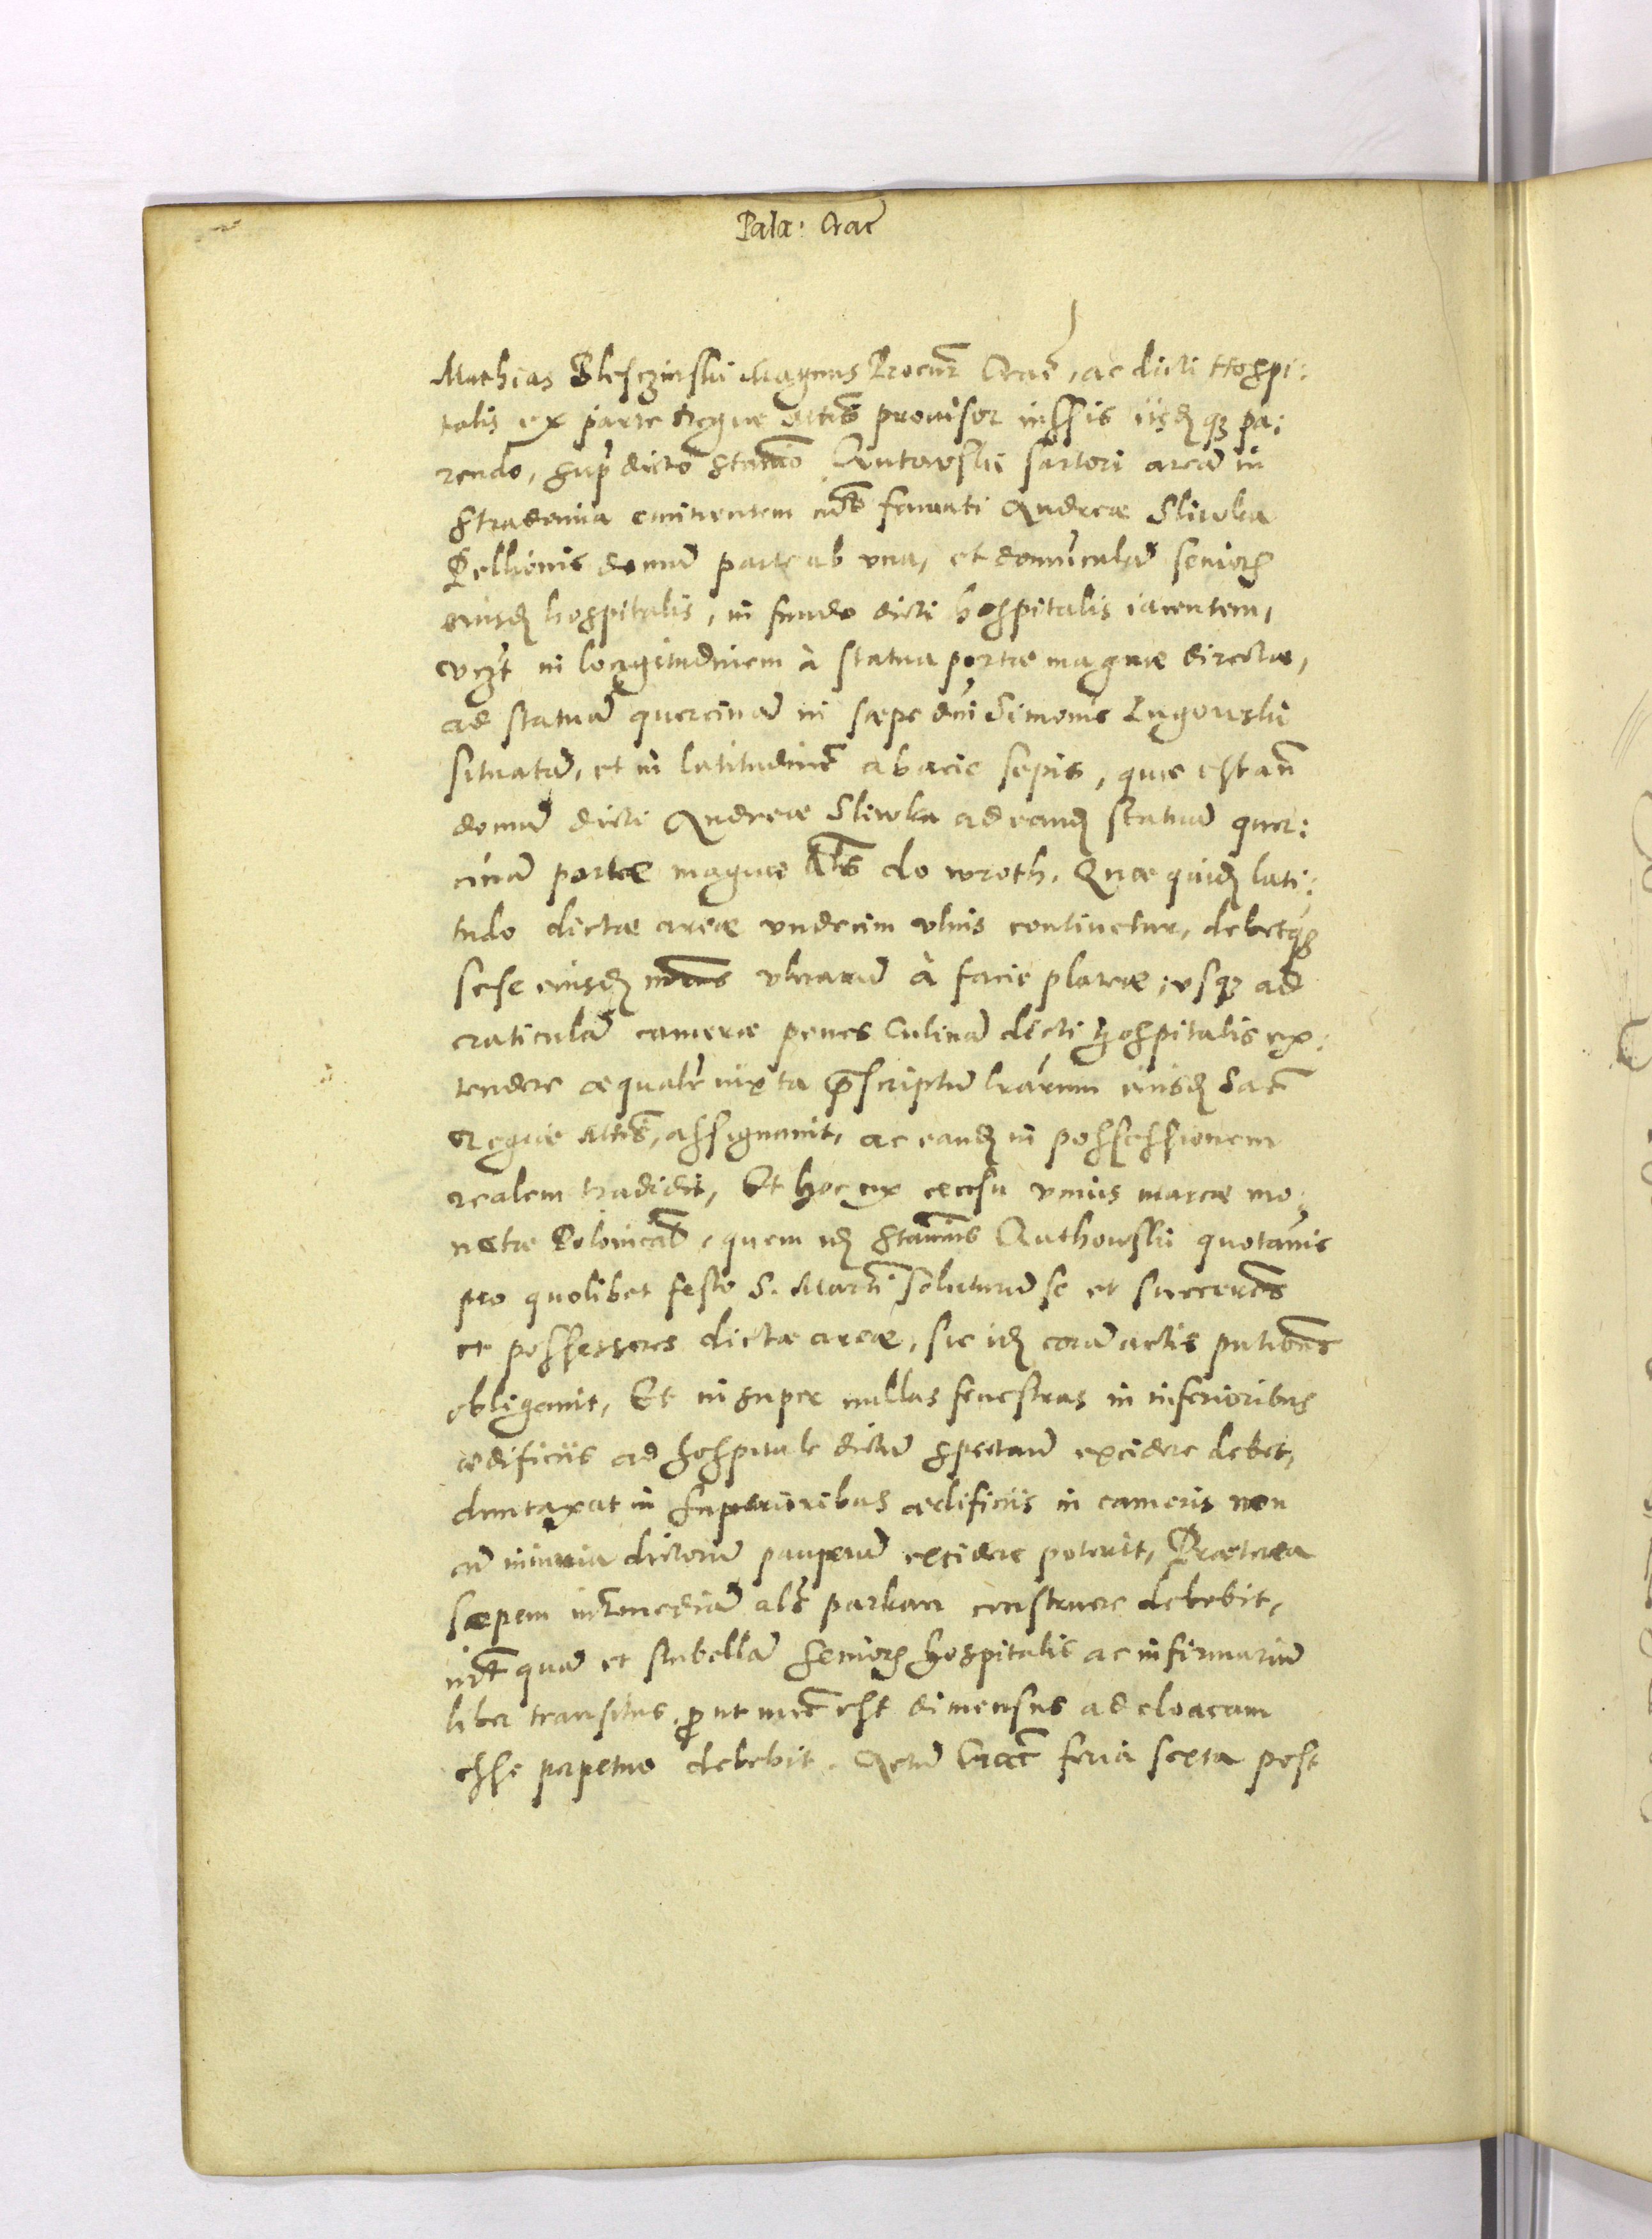 Pala: Crac̃
Mathias Blesczinski Magnus Procur̃ Crac̃, ac dicti Hospi:
talis ex parte Regiae Mtis prouisor iussis iisdꝫ qꝫ pa:
rendo, sup̃ dicto Stanisao Antowski sartori aream in
Stradomia eminentem int̃ famati Andreae Sliwka
Pellionis domũ parte ab vna, et domunculã seniorꝫ
eiusdꝫ hospitalis, in fundo dicti hospitalis iacentem,
vczt in longitudinem à statua portae magnae directae,
ad statuã quercinã in saepe dñi Simonis Lugowski
situatã, et in latitudinẽ ab acie sepis, quae est añ
domũ dicti Andreae Sliwka ad eandꝫ statuã quer:
cinã portae magnae als do wroth. Quae quidꝫ lati:
tudo dictae areae vndecim vlnis continetur, debetqꝫ
sese eiusdꝫ vlnarũ à facie plateae, vsqꝫ ad
craticulã camerae penes Culinã dicti Hospitalis ex:
tendere aequalr̃ iuxta p̃scriptũ lr̃arum eiusdꝫ Sac̃
Regiae Mtis, assignauit, ac eandꝫ in possessionem
realem tradidit, Et hoc ex censu vnius marcae mo:
netae Polonical̃, quem idꝫ Stanis̃ Anthowski quotañis
pro quolibet festo S. Marti soluturũ se et succeres
et possessores dictae areae, sic idꝫ corã actis p̃ntibus
obligauit, Et insuper nullas fenestras in inferioribus
aedificiis ad hospitale dictũ spectañ excidere debet,
duntaxat in superioribus aedificiis in cameris non
cũ iniuria dictorũ pauperũ excidere poterit, Praeterea
saepem int̃mediã als parkan construere debebit,
int̃ quã et stubellã seniorꝫ hospitalis ac infirmariũ
liber transitus, p̃ut nunc est dimensus ad cloacam
esse perpetuo debebit. Actũ Crac̃ feria sexta post